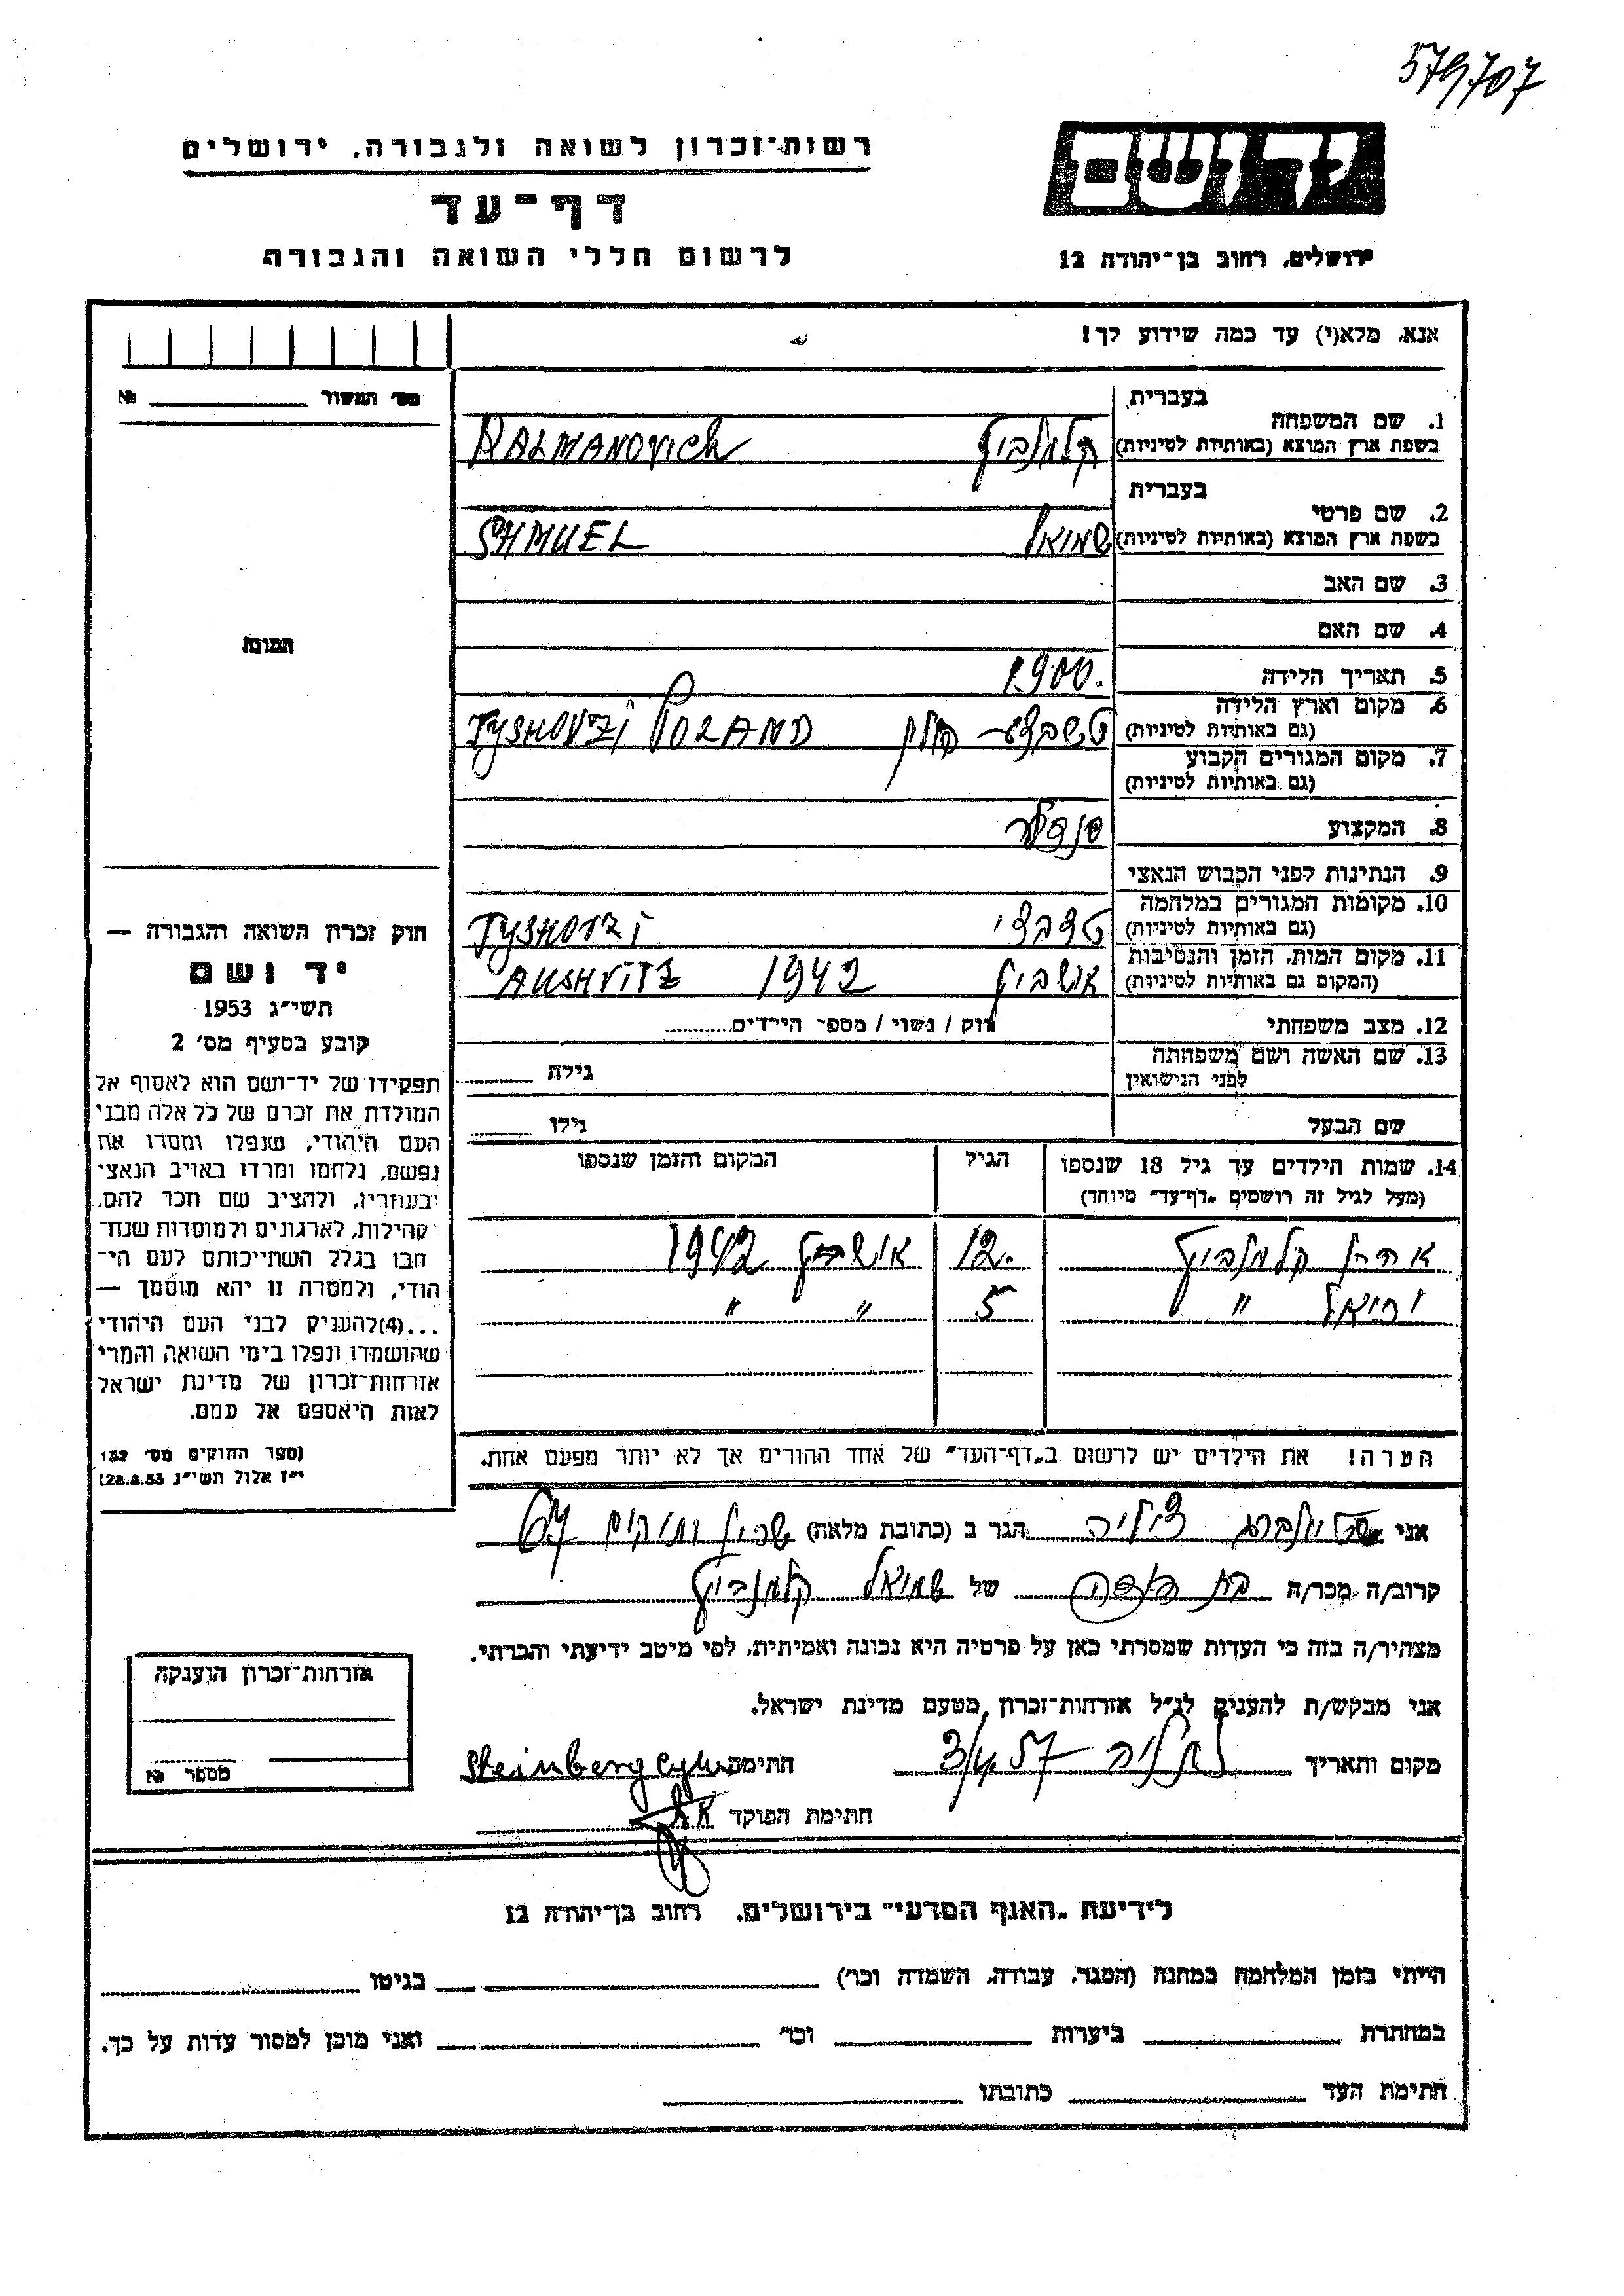 579707
רשות־זכרון לשואה ולגבורה, ירושלים
דף־עד
לרשום חללי השואה והגבורה
יד ושם
ירושלים, רחוב בן־יהודה 12
אנא, מלא(י) עד כמה שידוע לך!
מס׳ התשור № 
התמונה
חוק זכרון השואה והגבורה —
יד ושם
תשי״ג 1953
קובע בסעיף מס׳ 2
תפקידו של יד־ושם הוא לאסוף אל
המולדת את זכרם של כל אלה מבני
העם היהודי, שנפלו ומסרו את
נפשם, נלחמו ומרדו באויב הנאצי
ובעוזריו, ולהציב שם וזכר להם,
לקהילות, לארגונים ולמוסדות שנח־
רבו בגלל השתייכותם לעם הי־
הודי, ולמטרה זו יהא מוסמך —
...(4) להעניק לבני העם היהודי
שהושמדו ונפלו בימי השואה והמרי
אזרחות־זכרון של מדינת ישראל
לאות היאספם אל עמם.
(ספר החוקים מס׳ 132
י״ז אלול תשי״ג 28.8.53)
בעברית
1. שם המשפחה
בשפת ארץ המוצא (באותיות לטיניות) קלמנוביץ KALMANOVICH
בעברית
2. שם פרטי
בשפת ארץ המוצא (באותיות לטיניות) שמואל SHMUEL
3. שם האב
4. שם האם
5. תאריך הלידה 1900.
6. מקום וארץ הלידה
(גם באותיות לטיניות) פולין TYSHOVZI POLAND
7. מקום המגורים הקבוע
(גם באותיות לטיניות)
8. המקצוע סנדלר
9. הנתינות לפני הכבוש הנאצי
10. מקומות המגורים במלחמה
(גם באותיות לטיניות) TYSHOVZI
11. מקום המות, הזמן והנסיבות
(המקום גם באותיות לטיניות) אושביץ 1942 AUSHVITZ
12. מצב משפחתי רוק / נשוי / מספר הילדים
13. שם האשה ושם משפחתה
לפני הנישואין גילה
שם הבעל גילו
14. שמות הילדים עד גיל 18 שנספו הגיל המקום והזמן שנספו
(מעל לגיל זה רושמים „דף־עד״ מיוחד)
אהרן קלמנוביץ 12. אושביץ 1942
יחיאל " 5 " "
הערה! את הילדים יש לרשום ב„דף־העד״ של אחד ההורים אך לא יותר מפעם אחת.
אני שטיינברג ציליה הגר ב (כתובת מלאה) שכון ותיקים 67
קרוב/ה מכר/ה בת דודה של שמואל קלמנוביץ
מצהיר/ה בזה כי העדות שמסרתי כאן על פרטיה היא נכונה ואמיתית, לפי מיטב ידיעתי והכרתי.
אני מבקש/ת להעניק לנ״ל אזרחות־זכרון מטעם מדינת ישראל.
מקום ותאריך נתניה 3/4 57 חתימה Steinberg
חתימת הפוקד
אזרחות־זכרון הוענקה
מספר №
לידיעת „האגף המדעי״ בירושלים, רחוב בן־יהודה 12
הייתי בזמן המלחמה במחנה (הסגר, עבודה, השמדה וכר׳) בגיטו
במחתרת ביערות וכר׳ ואני מוכן למסור עדות על כך.
חתימת העד כתובתו